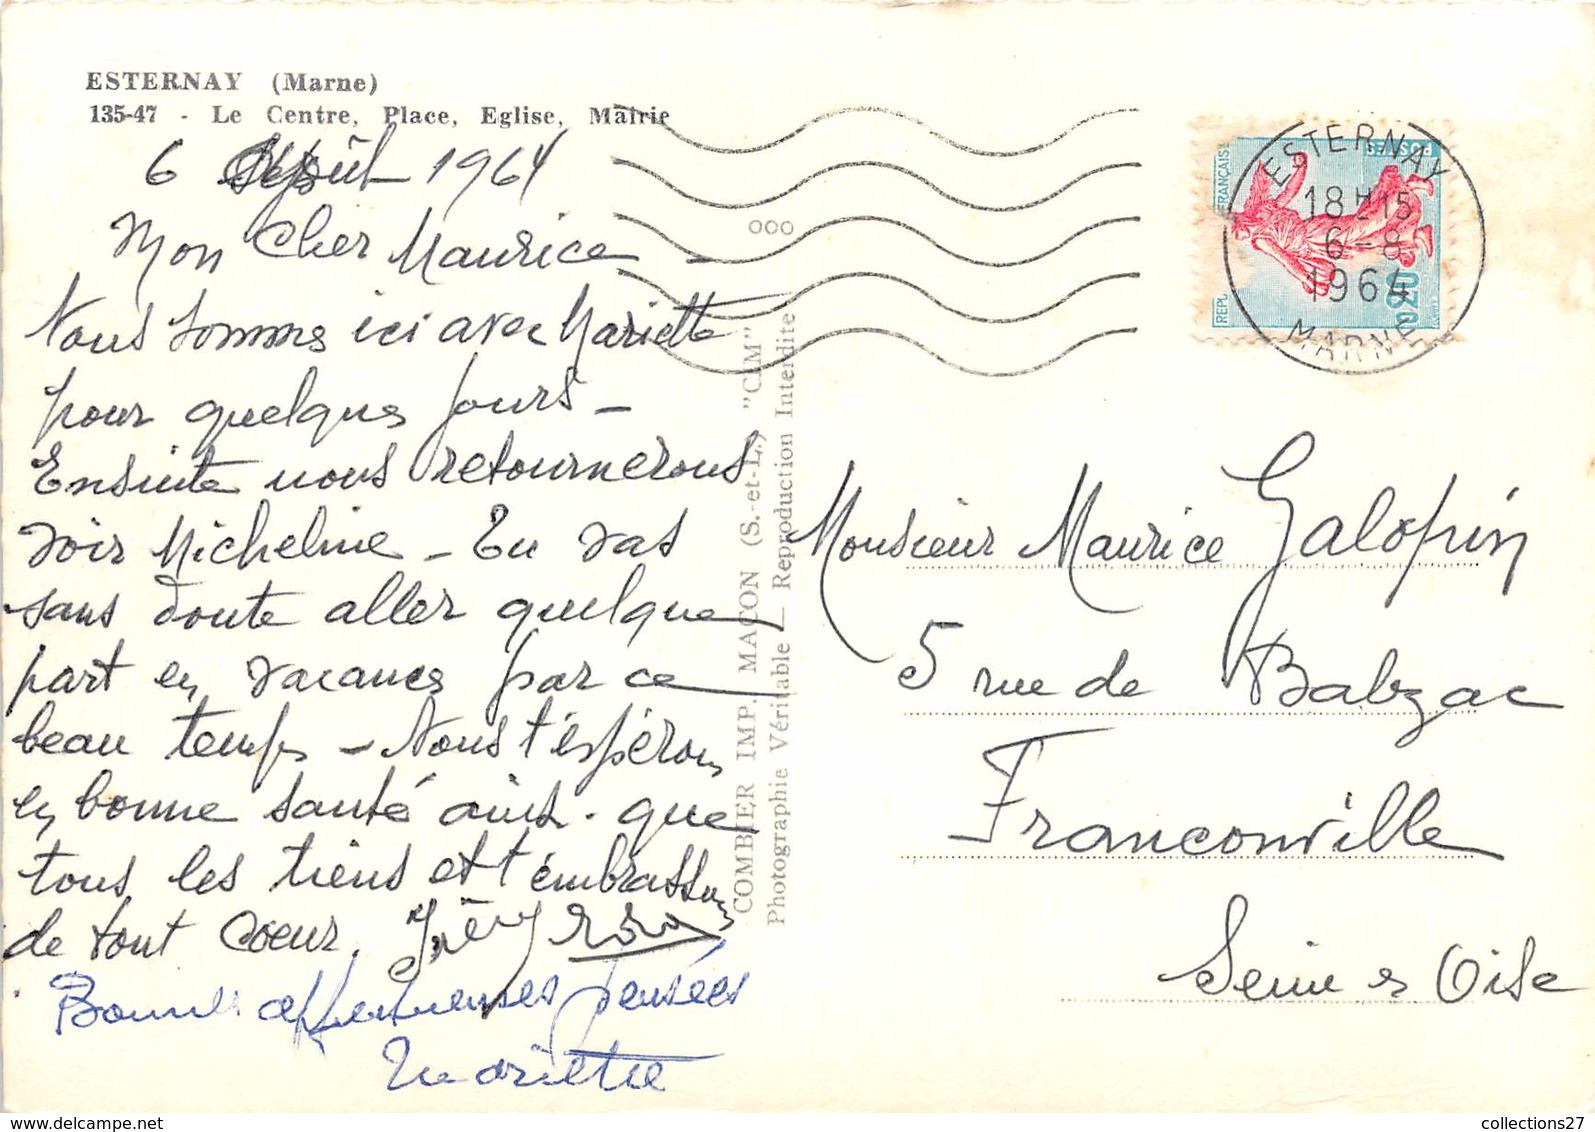 ESTERNAY (Marne)
135-47 - Le Centre, Place, Eglise, Mairie
6 Août 1964
Mon Cher Maurice -
Nous sommes ici avec Mariette
pour quelques jours -
Ensuite nous retournerons
voir Micheline - Tu vas
sans doute aller quelque
part en vacances par ce
beau temps - Nous t'espérons
en bonne santé ainsi que
tous les tiens et t'embrassons
de tout coeur.
Bonnes affectueuses pensées
Mariette
COMBIER IMP. MACON (S.-et-L.) "CIM"
Photographie Véritable - Reproduction Interdite
ooo
REPU FRANÇAISE
POSTES
0,30
ESTERNAY
18H15
6-8
1964
MARNE
Monsieur Maurice Galopin
5 rue de Balzac
Franconville
Seine et Oise
collections27